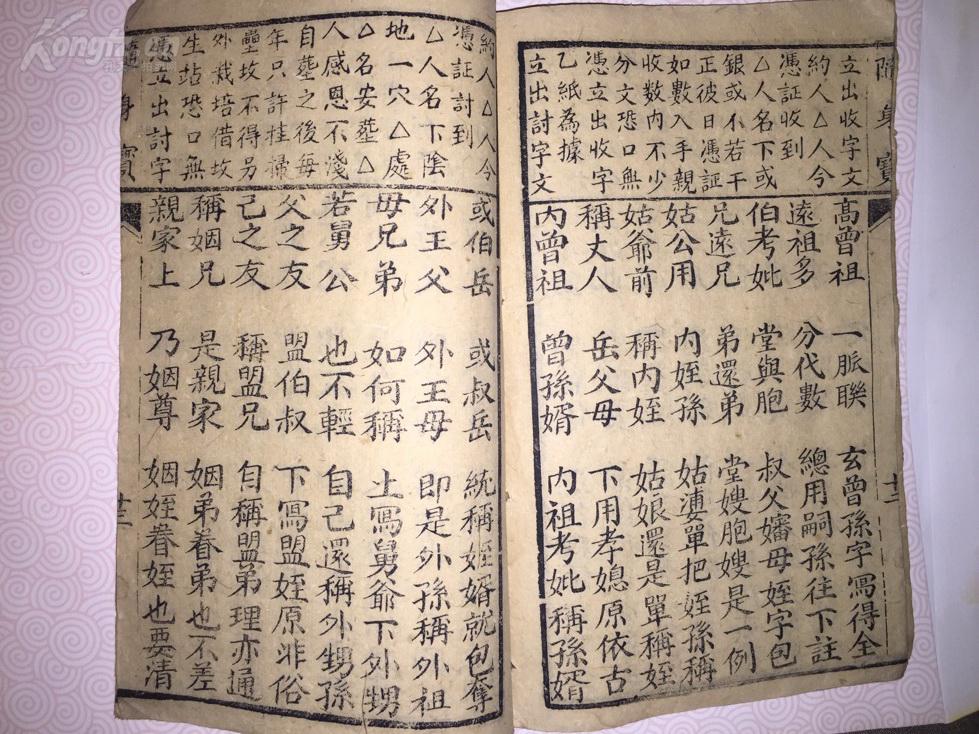 隨身寶
立出收字文
約人△人今
憑証收到
△人名下或
銀或不若干
正彼日憑証
如數入手親
收数内不少
分文恐口無
憑立出收字
乙紙為據
立出討字文
高曾祖 一脈聯 玄曾孫字寫得全
遠祖多 分代數 總用嗣孫往下註
伯考妣 堂與胞 叔父嬸母姪字包
兄遠兄 弟還弟 堂嫂胞嫂是一例
姑公用 内姪孫 姑婆單把姪孫稱
姑爺前 稱内姪 姑娘還是單稱姪
稱丈人 岳父母 下用孝媳原依古
内曾祖 曾孫婿 内祖考妣稱孫婿
約人△人今
憑証討到
△人名下陰
地一穴△處
△名安塟△
人感恩不淺
自塟之後每
年只許挂掃
壘坟不得另
外栽培借坟
生站恐口無
憑立出討字
或伯岳 或叔岳 統稱姪婿就包奪
外王父 外王母 即是外孫稱外祖
毋兄弟 如何稱 上寫舅爺下外甥
若舅公 也不輕 自己還稱外甥孫
父之友 盟伯叔 下寫盟姪原非俗
己之友 稱盟兄 自稱盟弟理亦通
稱姻兄 是親家 姻弟眷弟也不差
親家上 乃姻尊 姻姪眷姪也要清
身寶